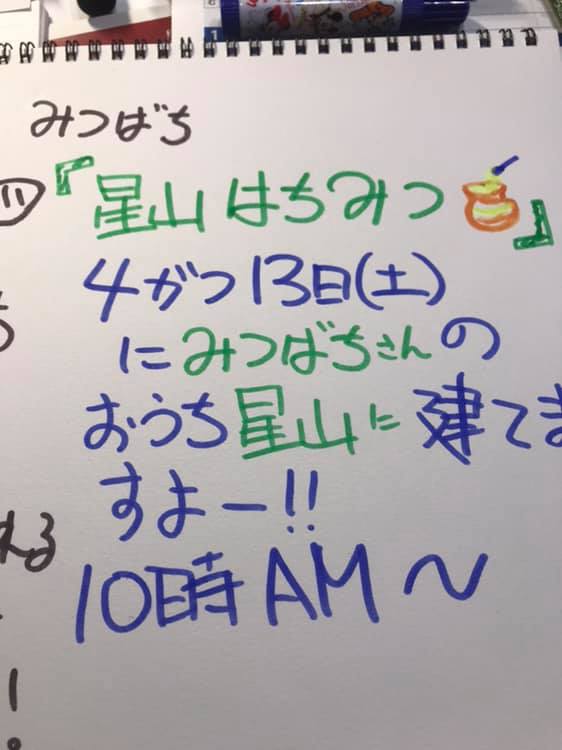 みつばち
『星山はちみつ』
4がつ13日(土)
にみつばちさんの
おうち星山に建てま
すよー!!
10時AM〜
れる
!